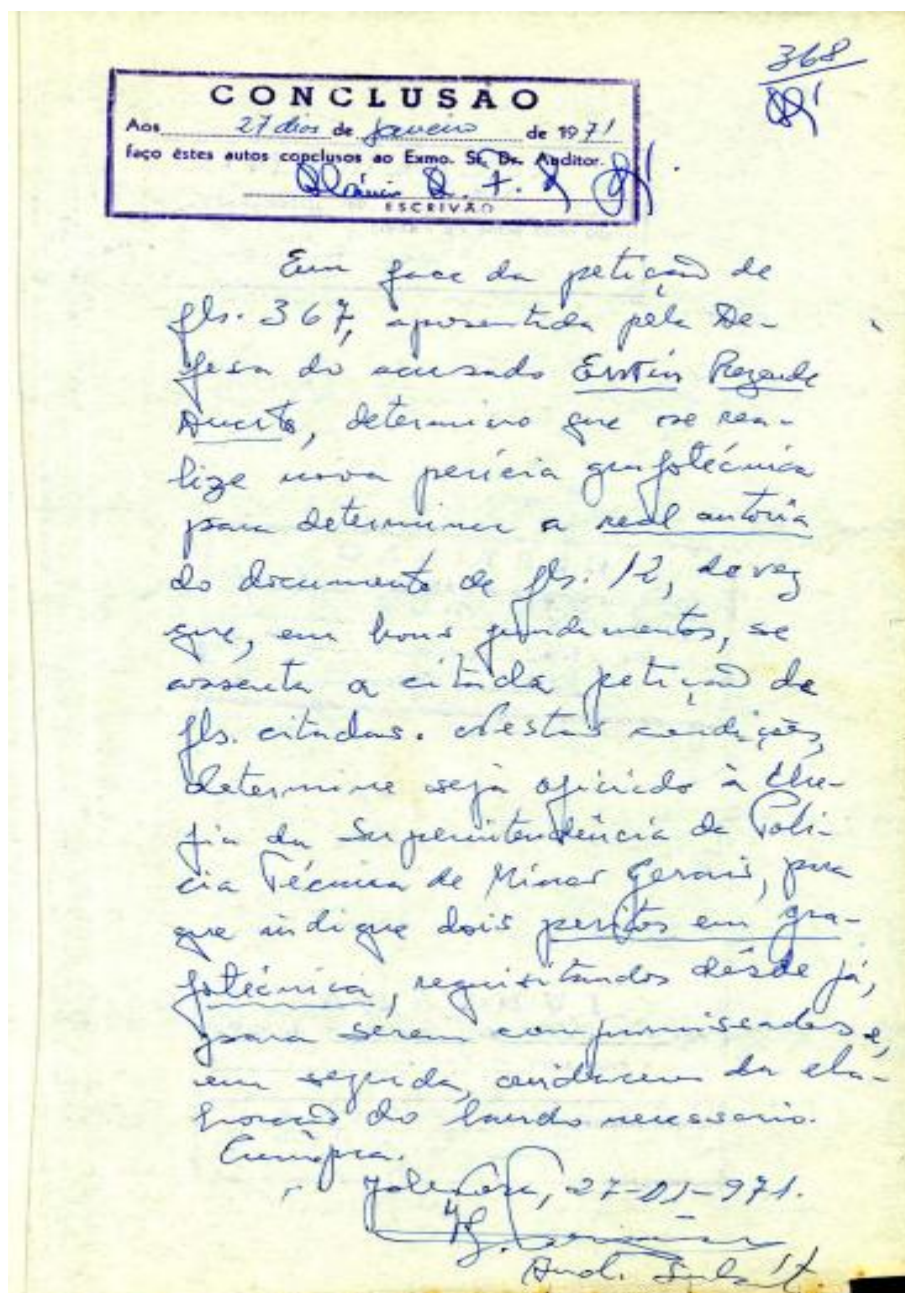 368
CONCLUSÃO
Aos 27 dias de janeiro de 1971
faço êstes autos conclusos ao Exmo. Sr. Dr. Auditor.
ESCRIVÃO
Em face da petição de
fls. 367, apresentada pela De-
fesa do acusado Erwin Rezende
Duarte, determino que se rea-
lize nova perícia grafotécnica
para determinar a real autoria
do documento de fls. 12, de vez
que, em bons fundamentos, se
assenta a citada petição de
fls. citadas. Nestas condições,
determino seja oficiado à Che-
fia da Superintendência de Polí-
cia Técnica de Minas Gerais, para
que indique dois peritos em gra-
fotécnica, requisitandos desde já,
para serem compromissados e,
em seguida, cuidarem da ela-
boração do laudo necessario.
Cumpra.
27-01-971.
Aud. Subst.